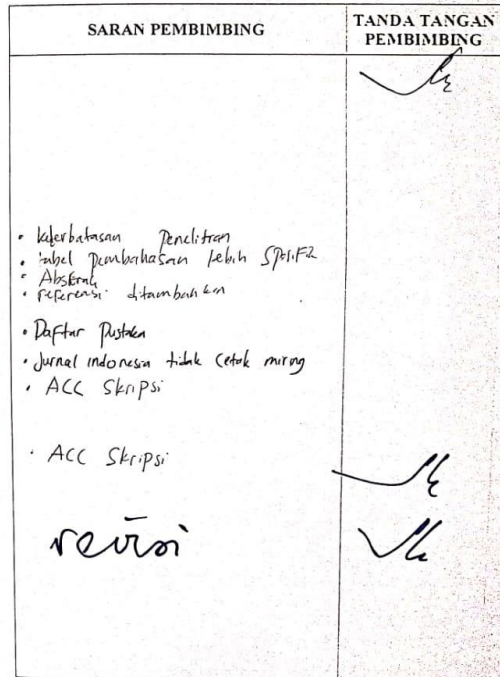 SARAN PEMBIMBING
TANDA TANGAN
PEMBIMBING
• keterbatasan Penelitian
• tabel pembahasan lebih
• Abstrak
• referensi ditambahkan
• Daftar Pustaka
• Jurnal indonesia tidak cetak miring
• ACC Skripsi
• ACC Skripsi
revisi